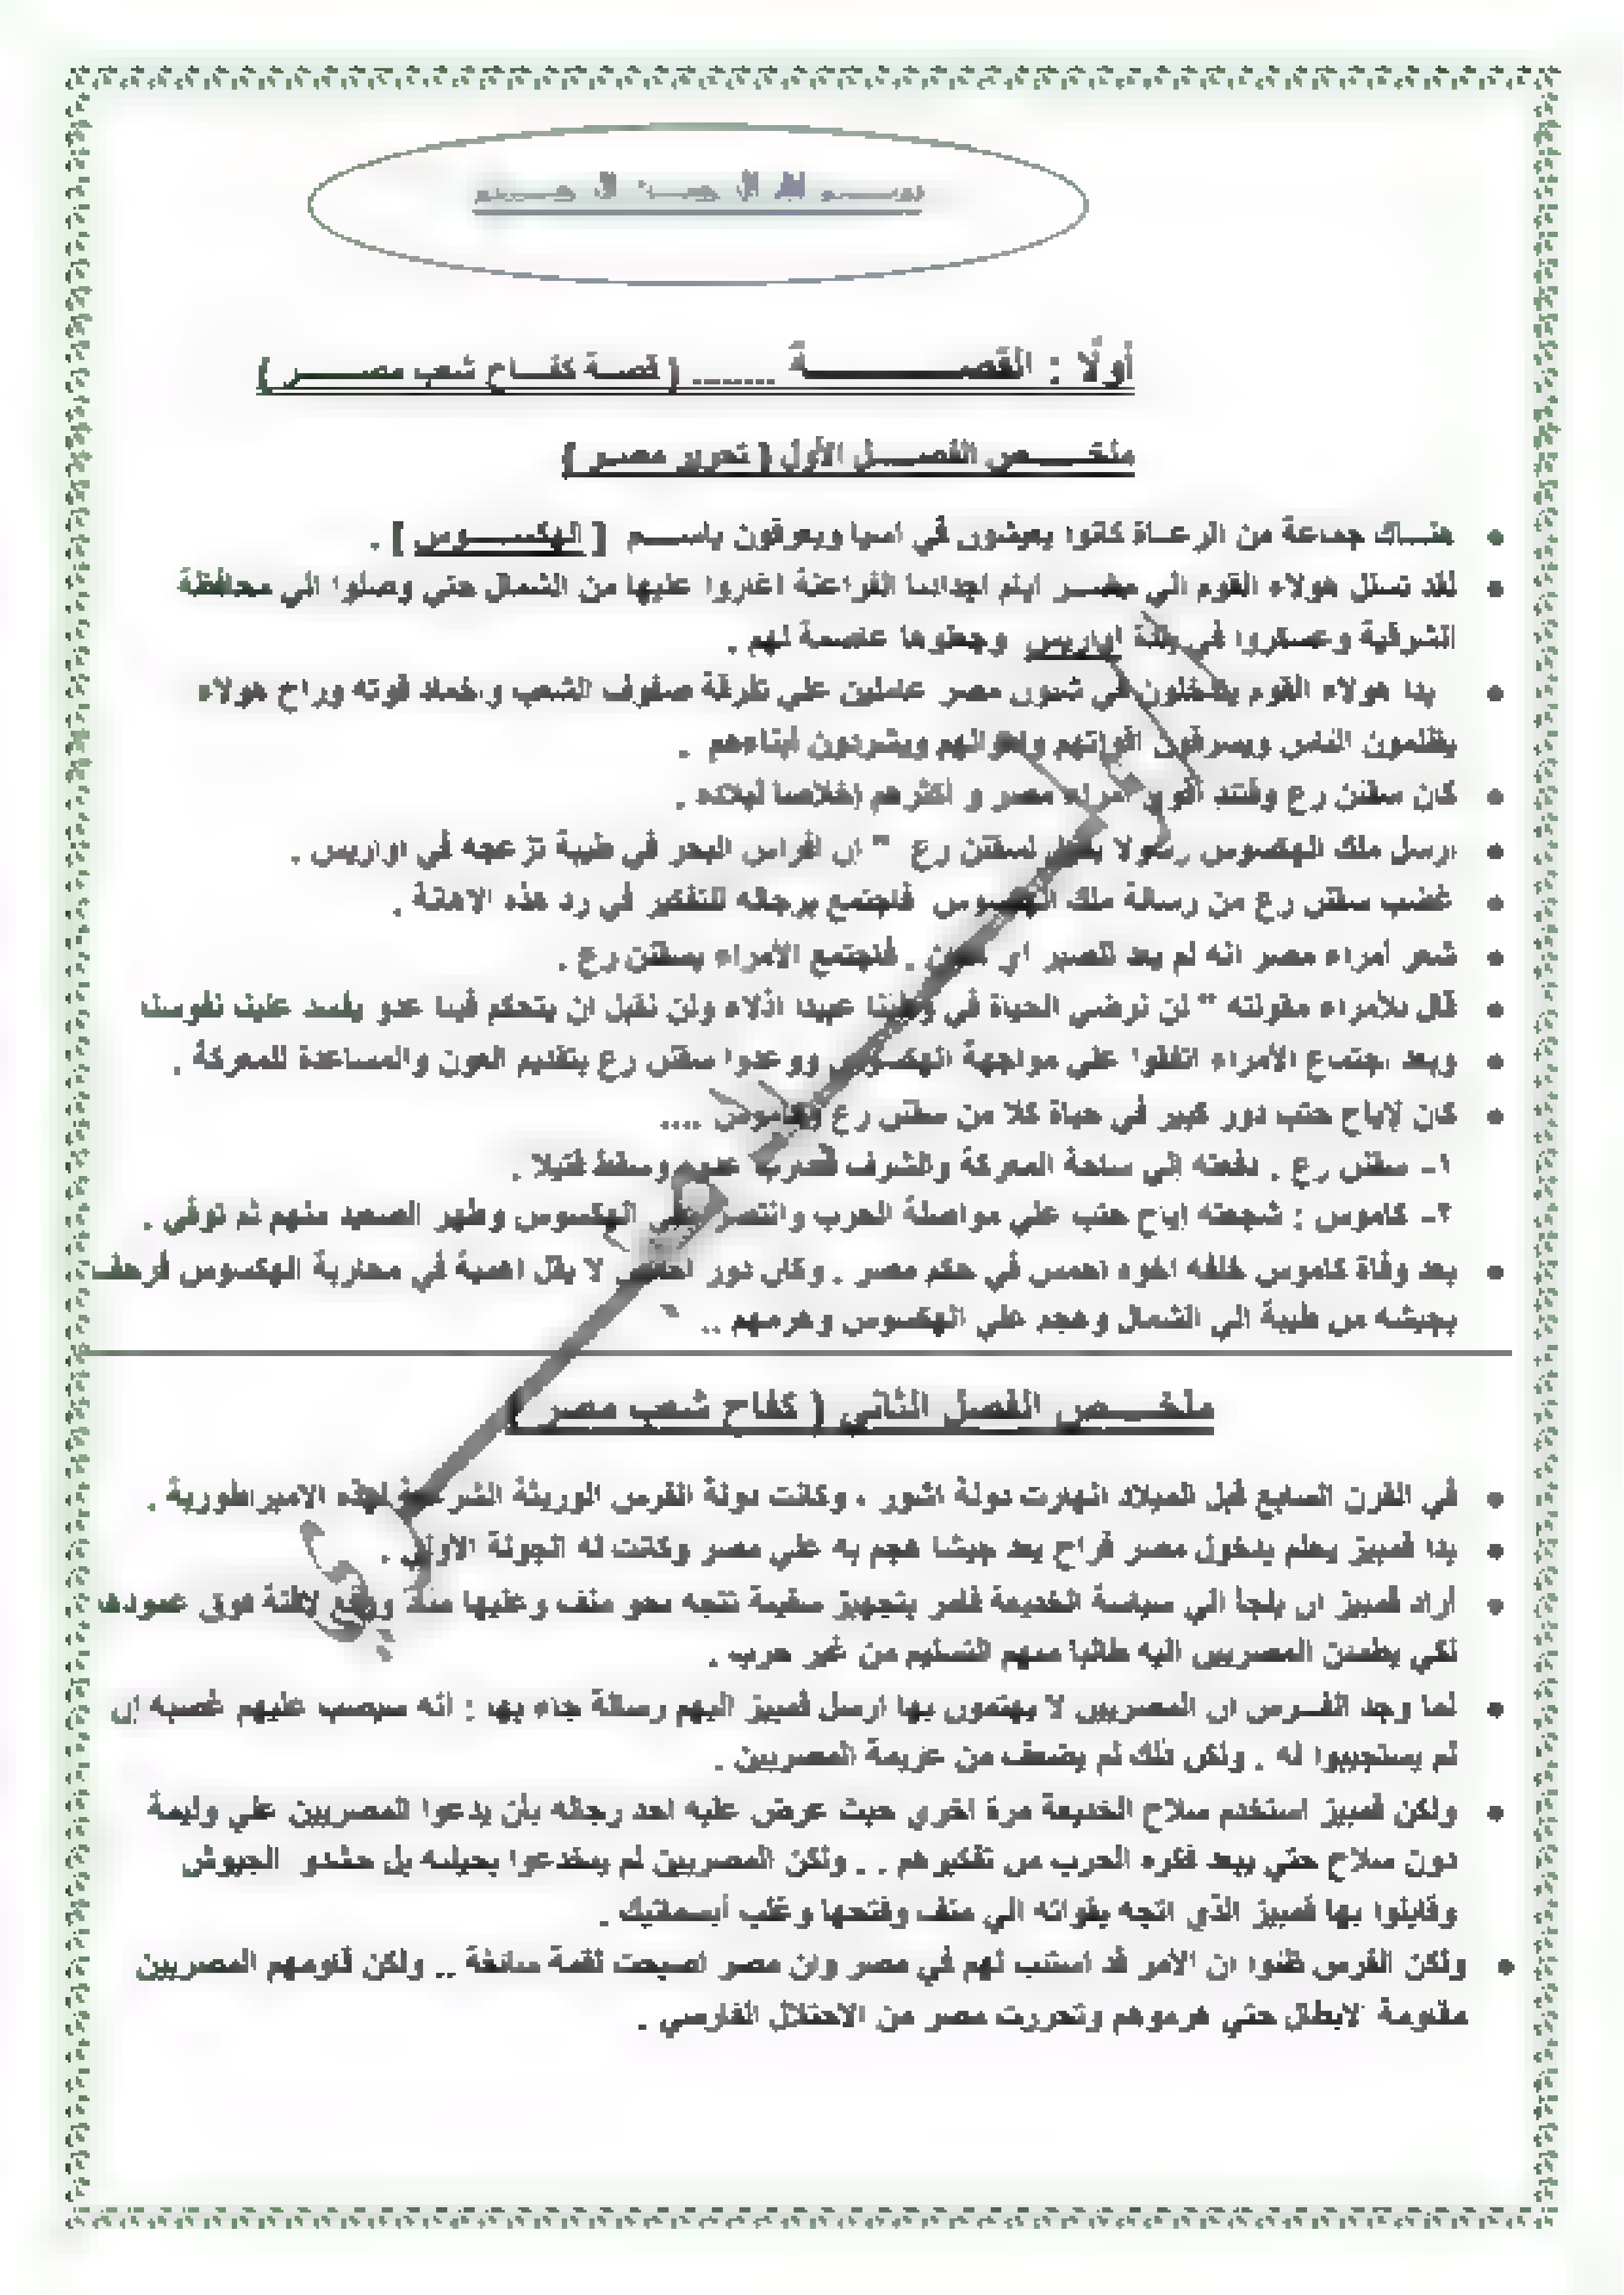 بسم الله الرحمن الرحيم
أولا : القصة ....... ( قصة كفاح شعب مصر )
ملخص الفصل الأول ( تحرير مصر )
هناك جماعة من الرعاة كانوا يعيشون في اسيا ويعرفون باسم [ الهكسوس ] .
لقد تسلل هولاء القوم الي مصر ايام اجدادنا الفراعنة اغاروا عليها من الشمال حتي وصلوا الي محافظة
الشرقية وعسكروا في بلدة اواريس وجعلوها عاصمة لهم .
بدا هولاء القوم يتدخلون في شئون مصر عاملين علي تفرقة صفوف الشعب وخماد قوته وراح هولاء
يظلمون الناس ويسرقون اقواتهم واموالهم ويشردون أبناءهم .
كان سقنن رع وقتئذ أقوي امراء مصر و أكثرهم إخلاصا لبلاده .
ارسل ملك الهكسوس رسولا يقول لسقنن رع " ان افراس البحر في طيبة تزعجه في اواريس .
غضب سقنن رع من رسالة ملك الهكسوس فاجتمع برجاله للتفكير في رد هذه الاهانة .
شعر أمراء مصر انه لم يعد للصبر اي مكان . فاجتمع الأمراء بسقنن رع .
قال للأمراء مقولته " لن نرضي الحياة في وطننا عبيدا اذلاء ولن نقبل ان يتحكم فينا عدو يفسد علينا نفوسنا
وبعد اجتماع الأمراء اتفقوا علي مواجهة الهكسوس ووعدوا سقنن رع بتقديم العون والمساعدة للمعركة .
كان لإياح حتب دور كبير في حياة كلا من سقنن رع وكاموس ....
١- سقنن رع . دفعته إلي ساحة المعركة والشرف فحارب عدوه وسقط قتيلا .
٢- كاموس : شجعته إياح حتب علي مواصلة الحرب وانتصر علي الهكسوس وطهر الصعيد منهم ثم توفي .
بعد وفاة كاموس خلفه اخوه احمس في حكم مصر . وكان دور احمس لا يقل اهمية في محاربة الهكسوس فزحف
بجيشه من طيبة الي الشمال وهجم علي الهكسوس وهزمهم ..
ملخص الفصل الثاني ( كفاح شعب مصر )
في القرن السابع قبل الميلاد انهارت دولة اشور ، وكانت دولة الفرس الوريثة الشرعية لهذه الامبراطورية .
بدا قمبيز يحلم بدخول مصر فراح يعد جيشا هجم به علي مصر وكانت له الجولة الاولي .
اراد قمبيز ان يلجأ الي سياسة الخديعة فامر بتجهيز سفينة تتجه نحو منف وعليها لافتة فوق عمودها
لكي يطمئن المصريين اليه طالبا منهم التسليم من غير حرب .
لما وجد الفرس ان المصريين لا يهتمون بها ارسل قمبيز اليهم رسالة جاء بها : انه سيصب عليهم غضبه إن
لم يستجيبوا له . ولكن ذلك لم يضعف من عزيمة المصريين .
ولكن قمبيز استخدم سلاح الخديعة مرة اخري حيث عرض عليه احد رجاله بأن يدعوا المصريين علي وليمة
دون سلاح حتي يبعد فكره الحرب من تفكيرهم . . ولكن المصريين لم يخدعوا بحيلته بل حشدو الجيوش
وقابلوا بها قمبيز الذي اتجه بقواته الي منف وفتحها وغلب أبسماتيك .
ولكن الفرس ظنوا ان الامر قد استتب لهم في مصر وان مصر اصبحت لقمة سائغة .. ولكن قاومهم المصريين
مقاومة الابطال حتي هزموهم وتحررت مصر من الاحتلال الفارسي .